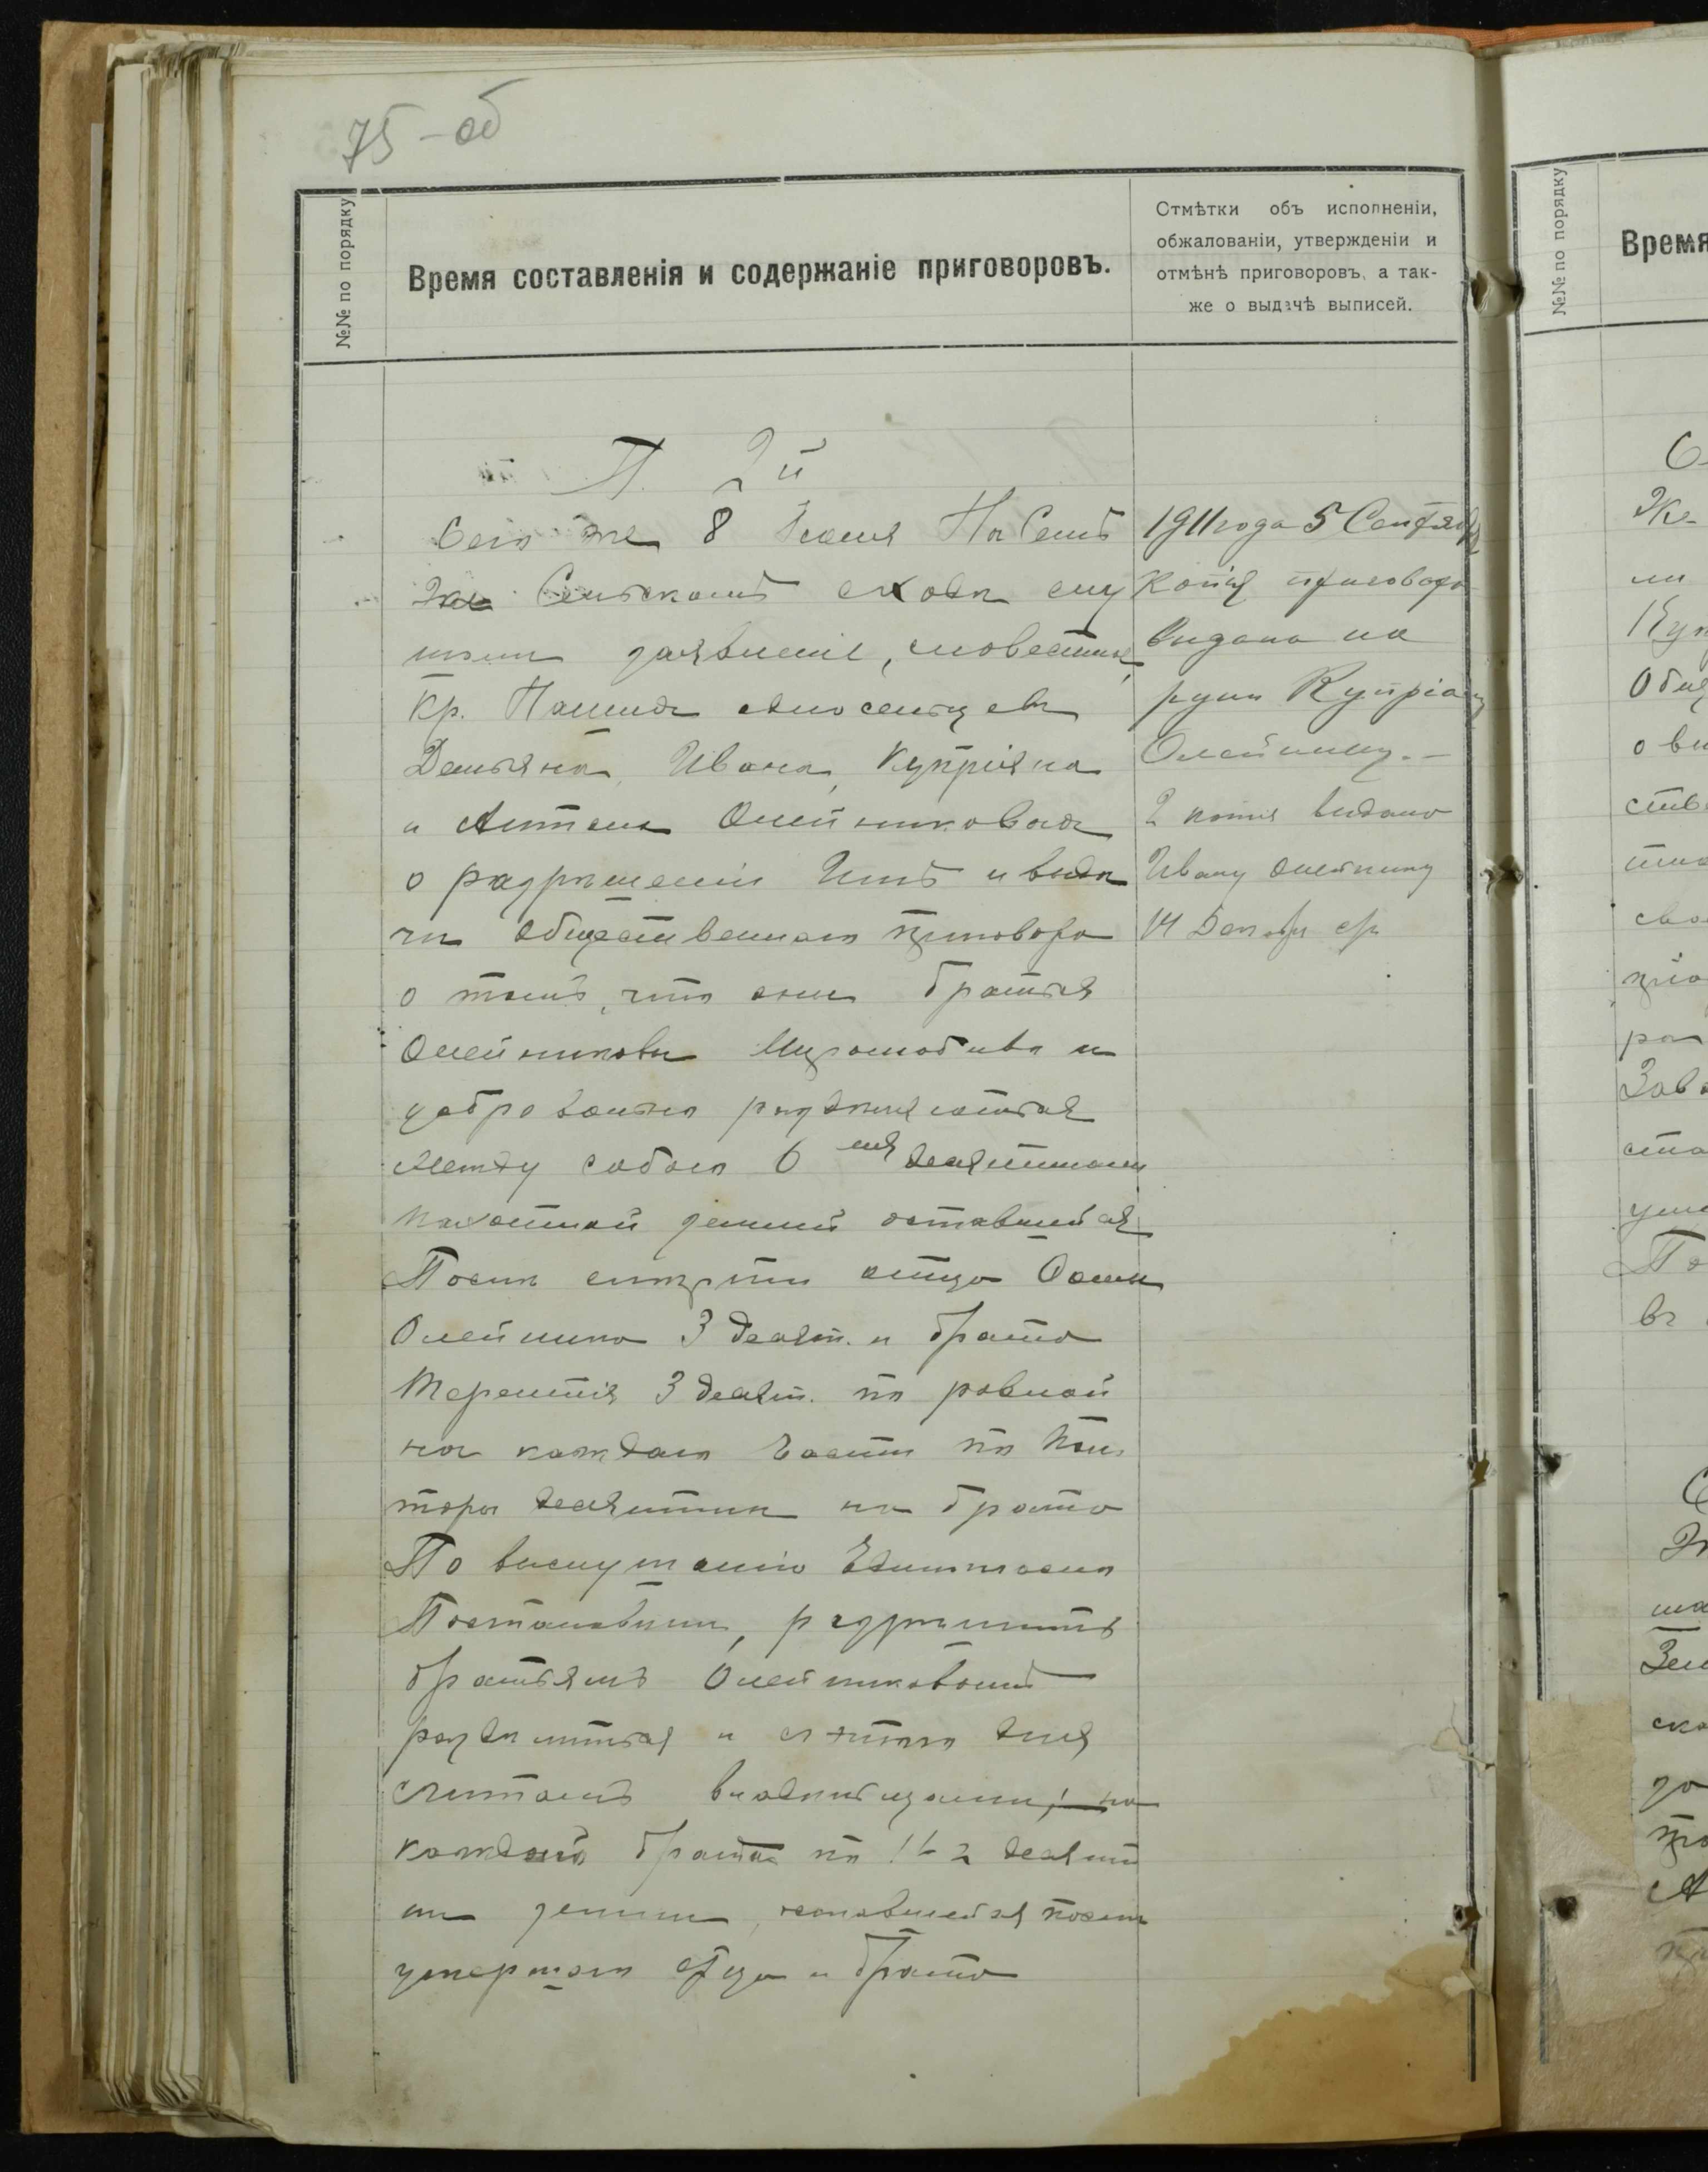 75-об
№№ по порядку
Время составленія и содержаніе приговоровъ.
Отмѣтки объ исполненіи,
обжалованіи, утвержденіи и
отмѣнѣ приговоровъ, а так-
же о выдачѣ выписей.
П. 2й
Сего же 8 Іюля На Семъ
Же Сельскомъ сходѣ слу
шали заявленіе, словестные,
Кр. Нашихъ односельцевъ
Демьяна, Ивана, Купріяна
и Антона Олейниковыхъ
о разрѣшеніи Имъ и выда
чи общественнаго приговора
о томъ, что они братья
Олейниковы Миролюбиво и
добровольно раздѣляються
Между собою 6 ю десятинами
пахотной земли оставшейся
Послѣ смерти отца
Олейника 3 десят. и брата
Терентія 3 десят. по ровной
на каждаго части по Пол
торы десятины на брата
По выслушанію Единогласно
Постановили, разрѣшить
братьямъ Олейниковымъ
раздѣлиться и съ этого дня
считать владѣльцами, на
каждаго брата по 1 1/2 десяти
ны земли, оставшейся послѣ
умершаго отца и брата
1911 года 5 Сентября
Копія приговора
видана на
руки Купріану
Олейнику.-
2 копія видано
Ивану Олейнику
14 Декабр с/г
№№ по порядку
Время